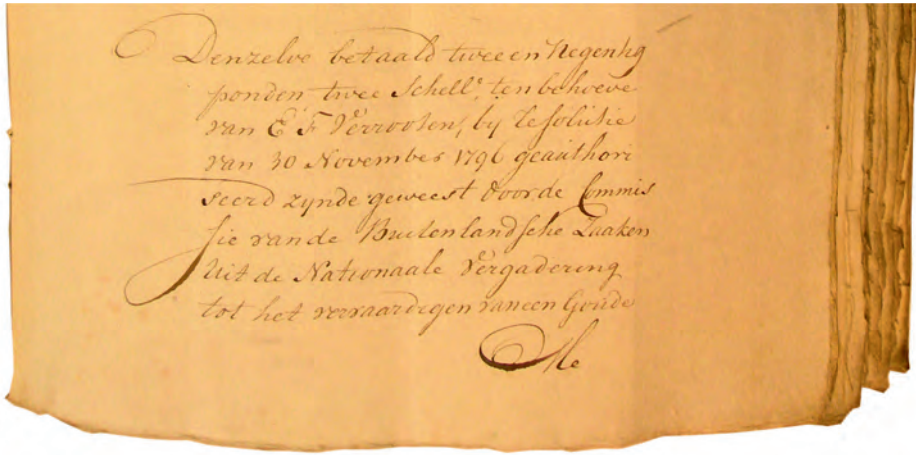 Denzelve betaald twee en Negentig
ponden twee Schell.s ten behoeve
van E F Verrooten, by Resolutie
van 30 November 1796 geauthori
seerd zynde geweest door de Commis
sie van de Buitenlandsche Zaaken
uit de Nationaale Vergadering
tot het vervaardigen van een Goude
Me